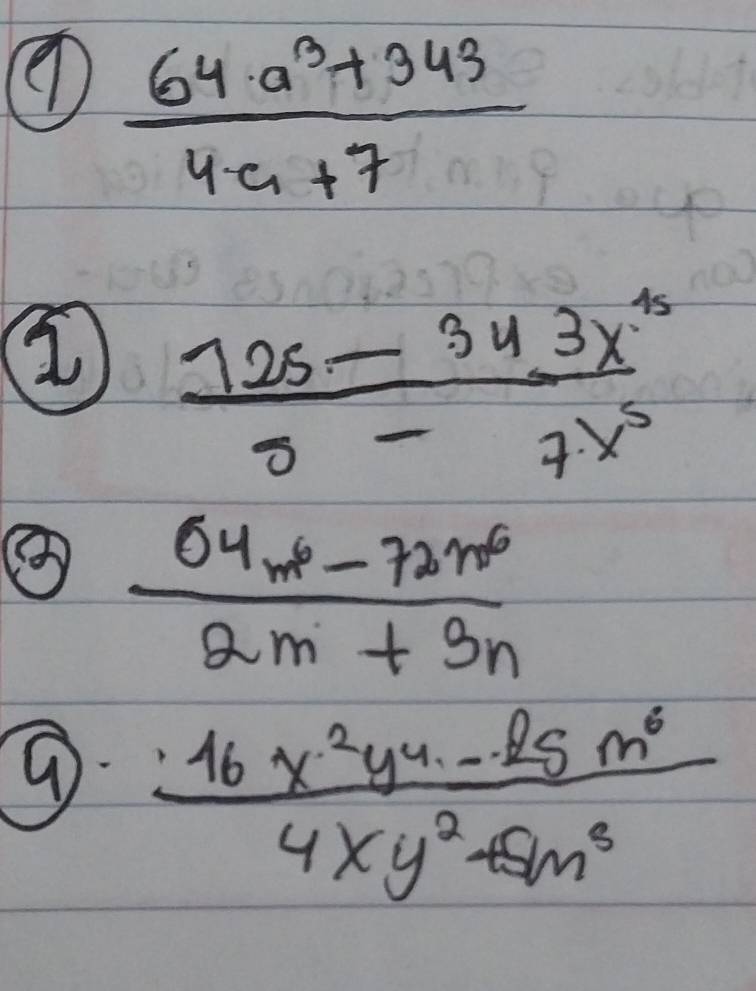 ① 64·a³+343
4·a+7
② 125·— 343x·¹⁵
5 — 7·x⁵
③ 64m⁶ – 72n⁶
2m + 3n
④ · 16x·²y⁴·–·25m⁶
4xy²+5m³